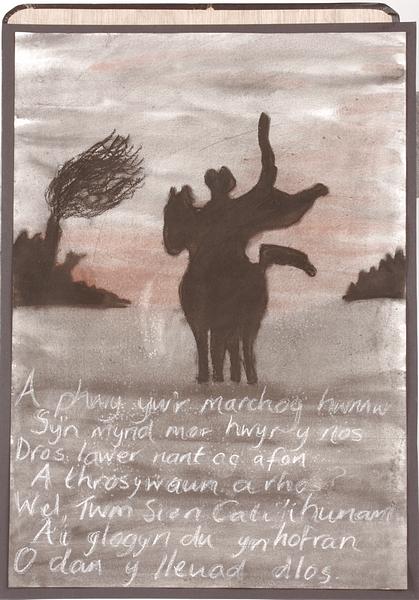 A phwy yw'r marchog hwnnw
Syn mynd mor hwyr y nos
Dros lawer nant ac afon
A throsywaun a rhos?
Wel, Twm Sion Cati 'i hunan
A'i glogyn du ynhofran
O dan y lleuad dlos.